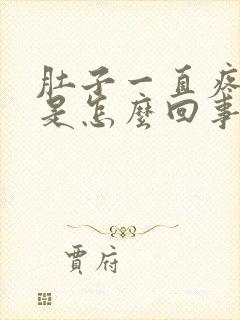 肚子一直疼
是怎麼回事
賈府